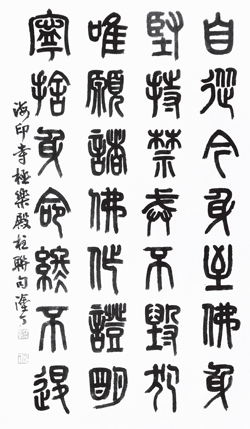 自從今身至佛身
堅持禁戒不毀犯
唯願諸佛作證明
寧捨身命終不退
海印寺極樂殿柱聯句